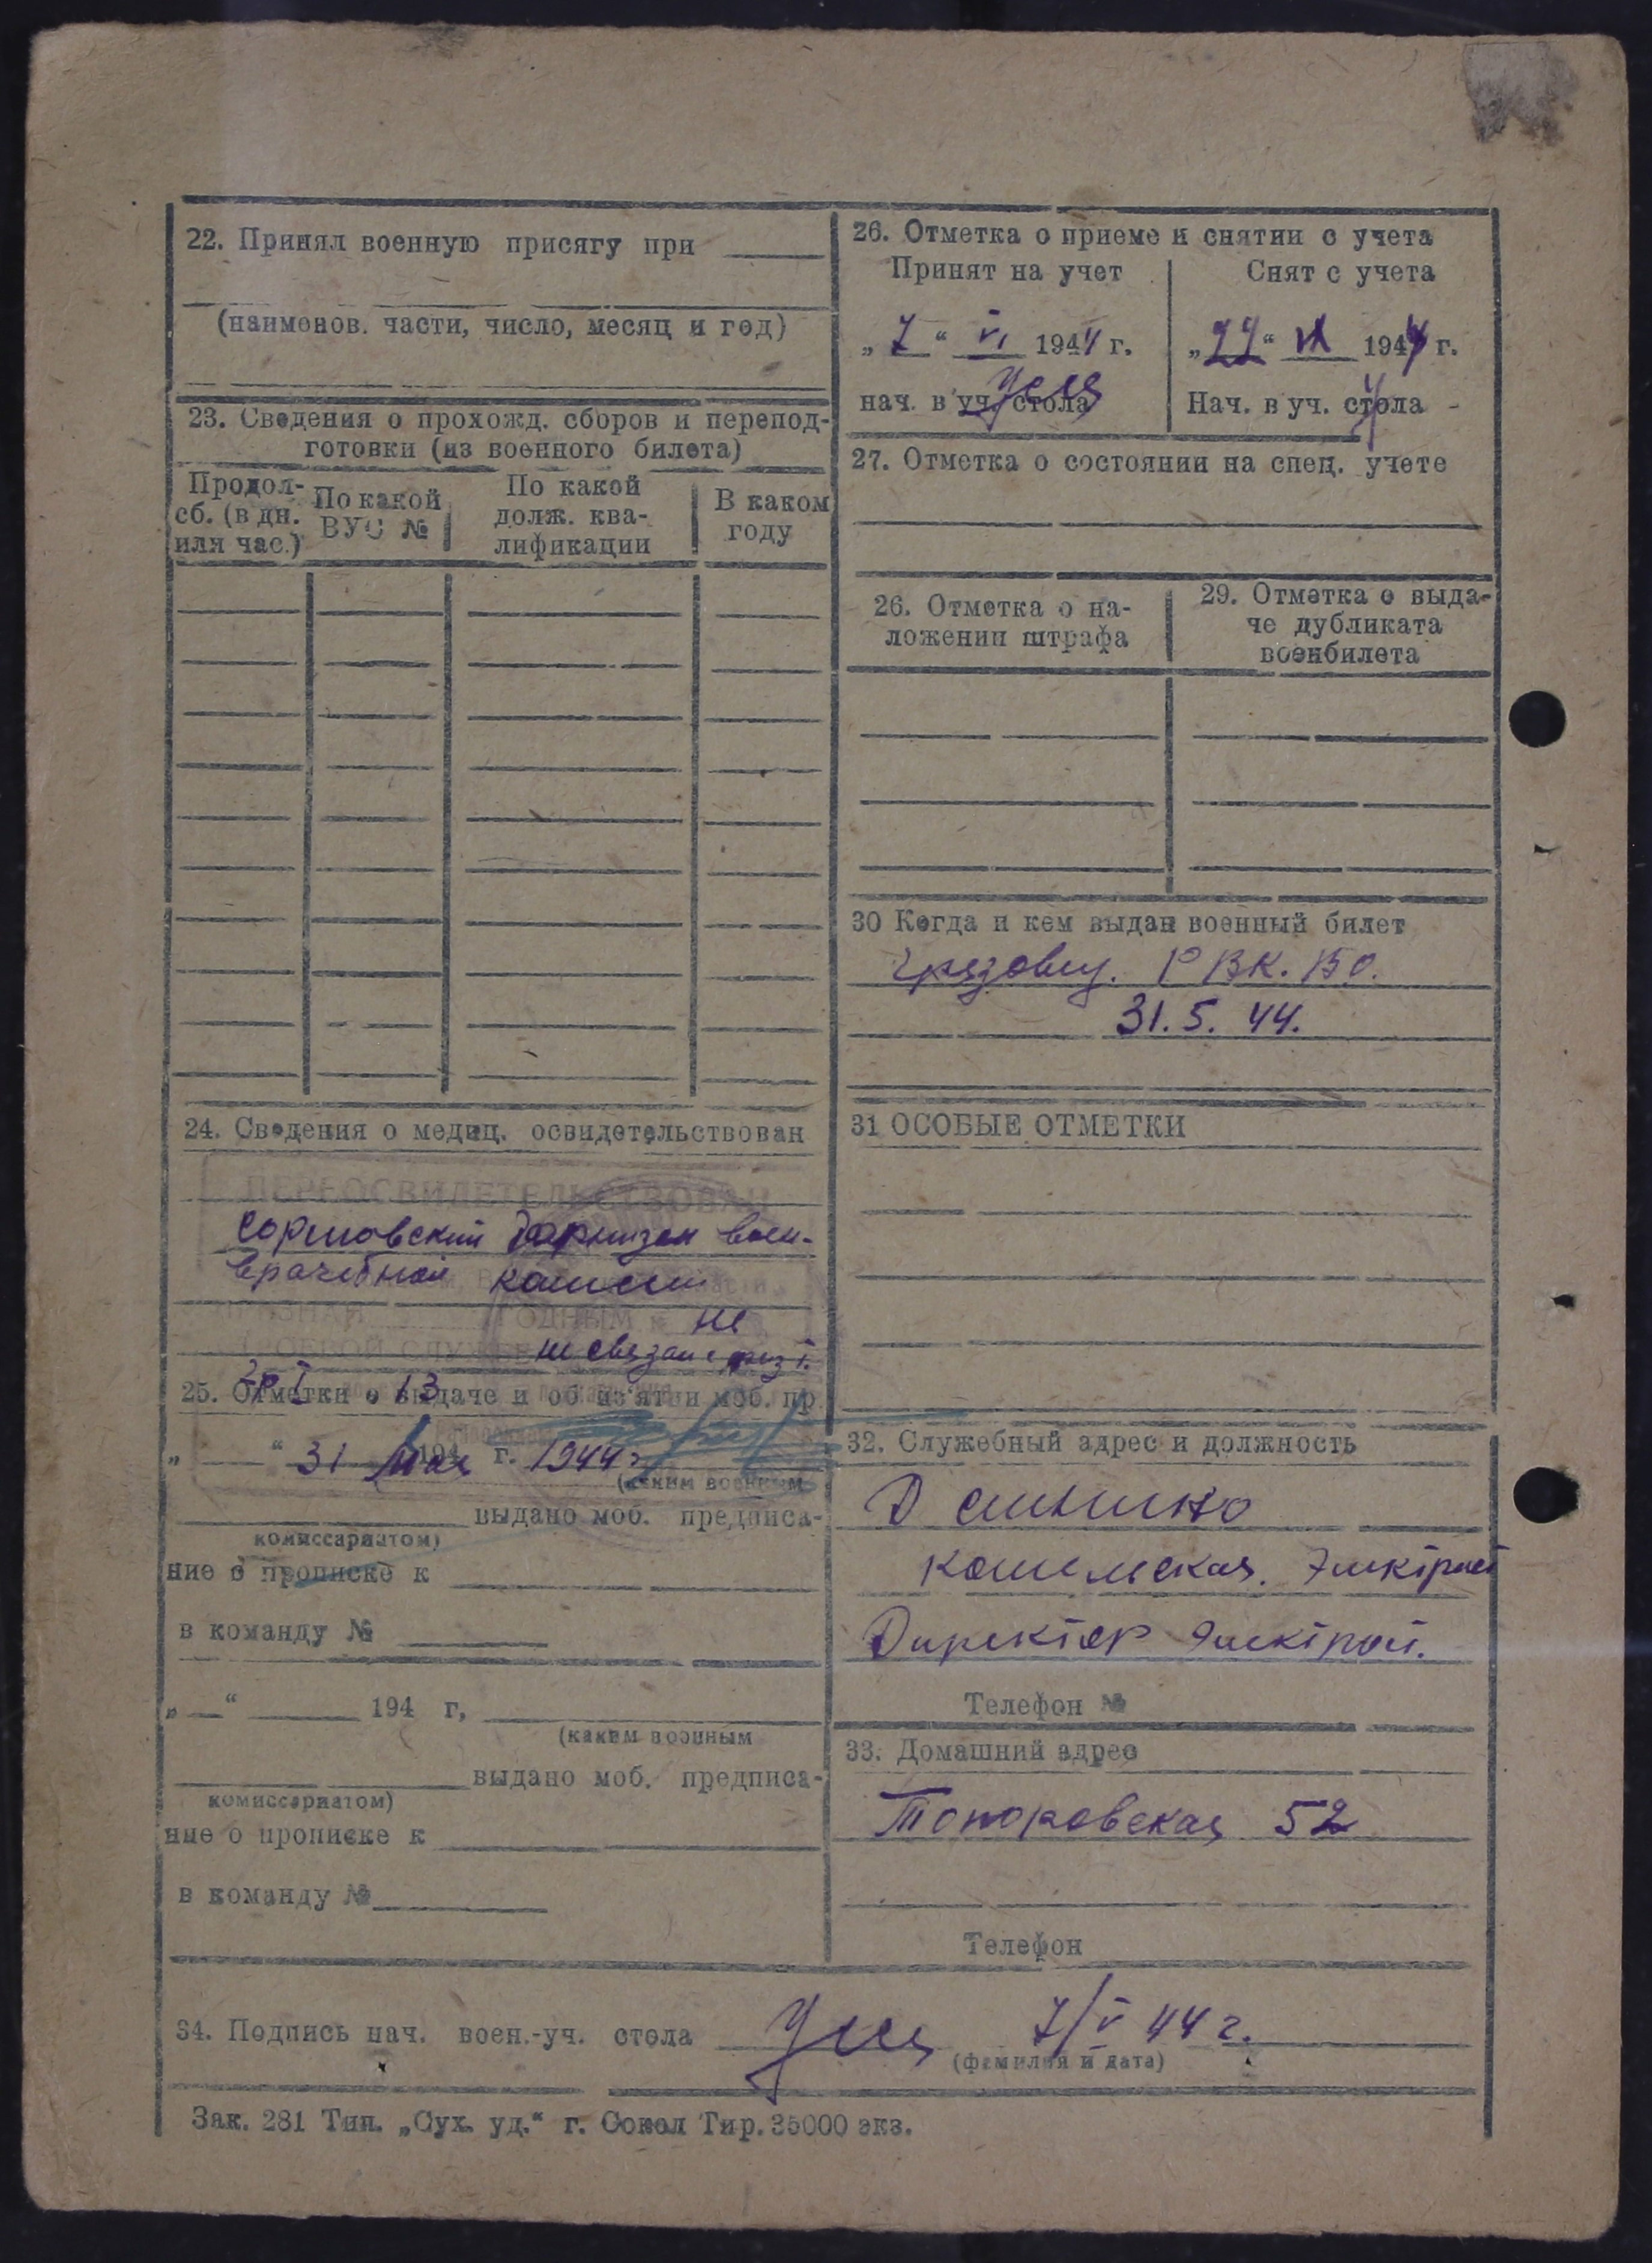 22. Принял военную присягу при
(наименов. части, число, месяц и год)
23. Сведения о прохожд. сборов и перепод-
готовки (из военного билета)
Продол-
сб. (в дн.
или час.)
По какой
ВУС №
По какой
долж. ква-
лификации
В каком
году
24. Сведения о медиц. освидетельствован
ПЕРЕОСВИДЕТЕЛЬСТВОВАН
воен-
врачебной комисси
ГОДНЫМ не
СЛУЖБЕ не связан с
25. Отметки о выдаче и об из'ятии моб. пр
„ “ 31 мая 194 г. 1944 г
(каким военным
выдано моб. предписа-
комиссариатом)
ние о прописке к
в команду №
„ “ 194 г,
(каким военным
выдано моб. предписа-
комиссариатом)
ние о прописке к
в команду №
26. Отметка о приеме и снятии с учета
Принят на учет
„7“ VI 1944 г.
нач. в уч. стола
Снят с учета
1944 г.
Нач. в уч. стола
27. Отметка о состоянии на спец. учете
26. Отметка о на-
ложении штрафа
29. Отметка о выда-
че дубликата
военбилета
30 Когда и кем выдан военный билет
Грязовец. РВК. ВО.
31. 5. 44.
31 ОСОБЫЕ ОТМЕТКИ
32. Служебный адрес и должность
Д
Директор
Телефон №
33. Домашний адрес
Топоровская 52
Телефон
34. Подпись нач. воен.-уч. стола 7/V 44 г.
(фамилия и дата)
Зак. 281 Тип. „Сух. уд.“ г. Сокол Тир. 35000 экз.